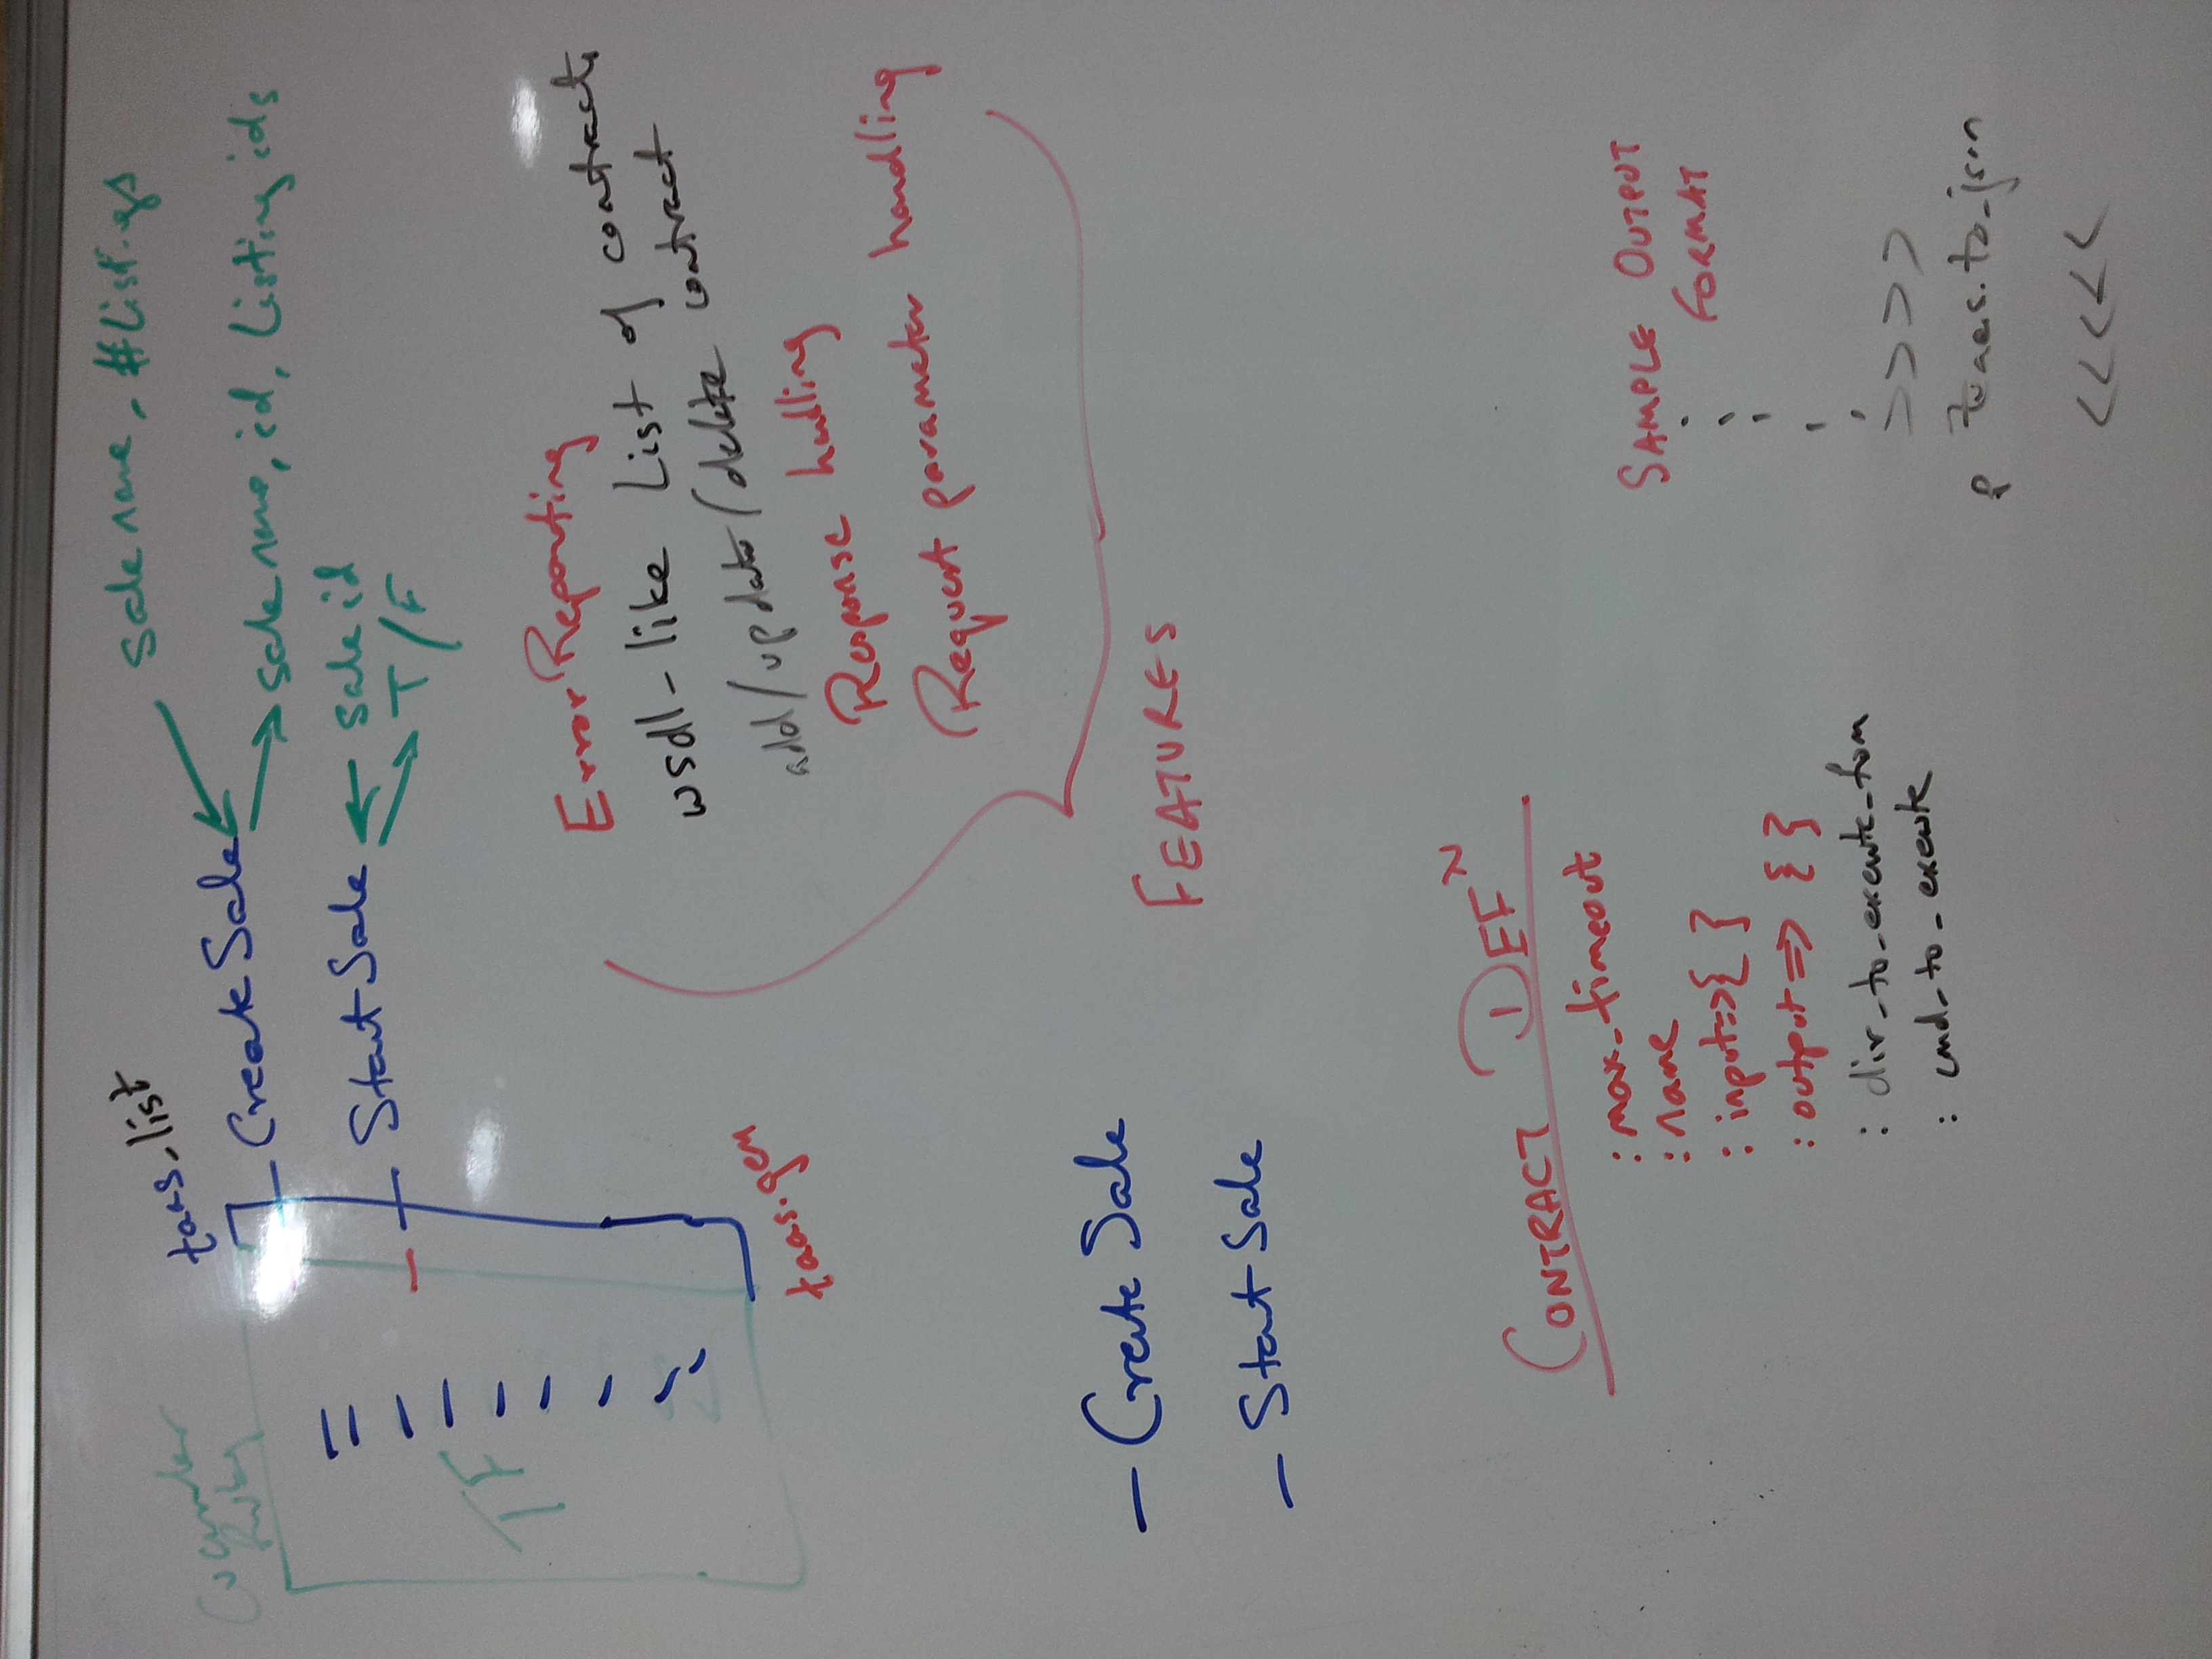 Cucumber
Ruby
taas_list
TF
taas.gem
CreateSale
sale name, #Listings
sale name, id, Listing ids
StartSale
sale id
T/F
Error Reporting
wsdl-like List of contracts
add/update/delete contract
Response handling
Request parameter handling
FEATURES
- Create Sale
- Start Sale
CONTRACT DEFN
:max_timeout
:name
:input=>{ }
:output=> { }
: dir_to_execute_from
: cmd_to_execute
SAMPLE OUTPUT
FORMAT
>>>>
p taas.to_json
<<<<<